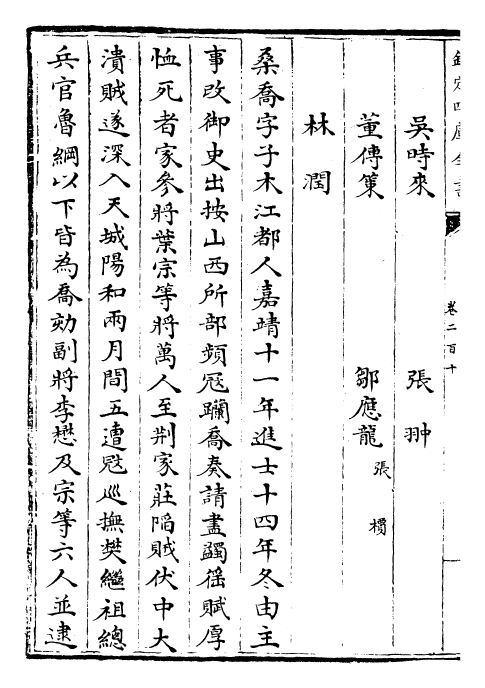 欽定四庫全書
卷二百十
吳時來
張翀
董傳策
鄒應龍 張檟
林潤
桑喬字子木江都人嘉靖十一年進士十四年冬由主
事改御史出按山西所部頻冦躪喬奏請盡蠲徭賦厚
恤死者家參將葉宗等將萬人至荆家莊陷賊伏中大
潰賊遂深入天城陽和兩月間五遭冦巡撫樊繼祖總
兵官魯綱以下皆為喬劾副將李懋及宗等六人並逮